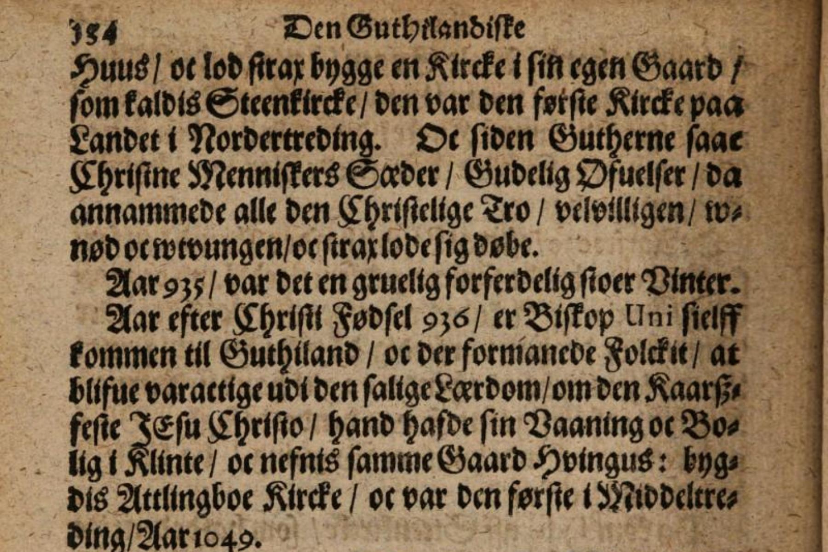 154 Den Guthilandiske
Huus/ oc lod strax bygge en Kircke i sin egen Gaard /
som kaldis Steenkircke/ den var den første Kircke paa
Landet i Nordertreding. Oc siden Gutherne saae
Christne Menniskers Sæder / Gudelig Øfuelser / da
annammede alle den Christelige Tro / velvilligen/ w⸗
nød oc wtvungen/oc strax lode sig døbe.
Aar 935/ var det en gruelig forferdelig stoer Vinter.
Aar efter Christi Fødsel 936/ er Biskop Uni sielff
kommen til Guthiland / oc der formanede Folckit/ at
blifue varactige udi den salige Lærdom/om den Kaarß⸗
feste JEsu Christo / hand hafde sin Vaaning oc Bo⸗
lig i Klinte/ oc nefnis samme Gaard Hvingus: byg⸗
dis Attlingboe Kircke / oc var den første i Middeltre⸗
ding/Aar 1049.